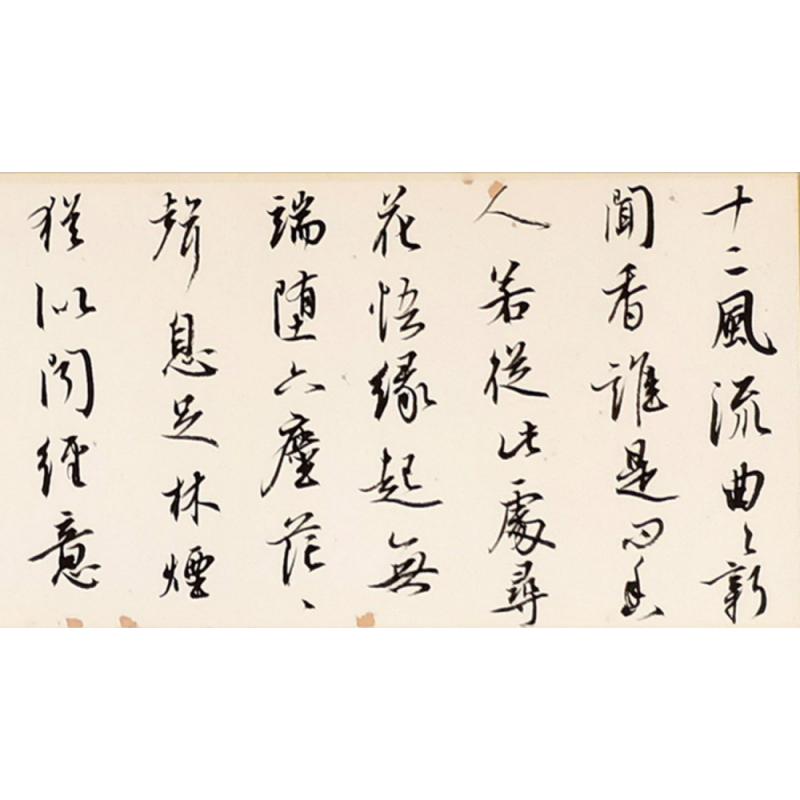 十二風流曲〻新
聞香誰是問香
人若從此處尋
花悟緣起無
端墮六塵茫〻
聲息足林煙
猶似聞經意